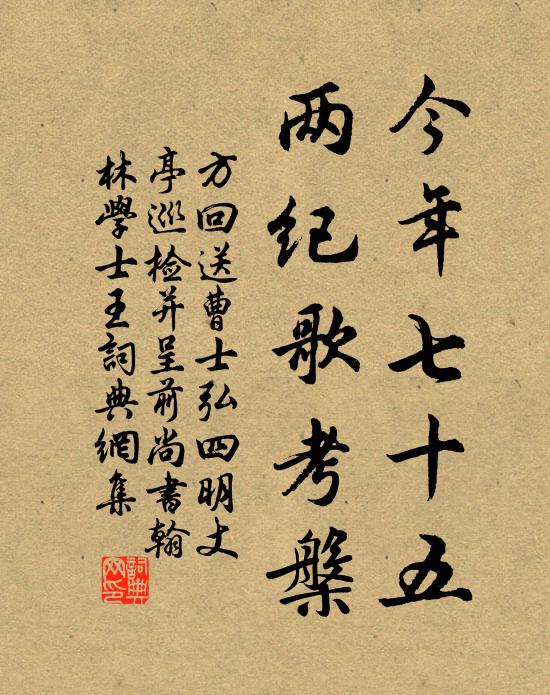 今年七十五
两纪歌考槃
方回送曹士弘四明丈
亭巡检并呈前尚书翰
林学士王詞典網集
詞典网印